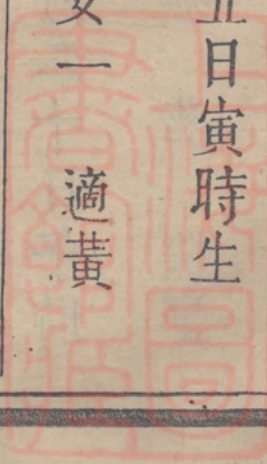 日寅時生
女一 適黃